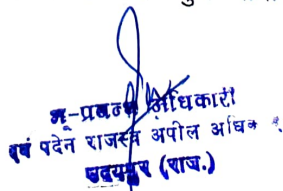 भू-प्रबन्ध अधिकारी
एवं पदेन राजस्व अपील अधिक
उदयपुर (राज.)